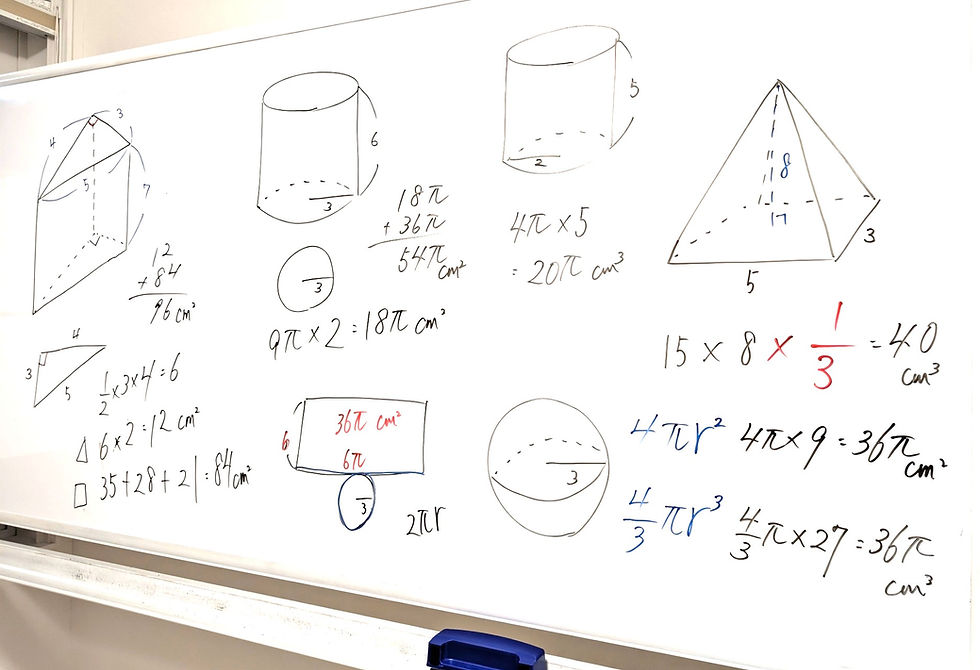 4
3
5
7
12
+84
96 cm²
4
3
5
1/2×3×4=6
△ 6×2=12 cm²
□ 35+28+21=84 cm²
6
3
3
18π
+36π
54π cm²
9π×2=18π cm²
36π cm²
6
6π
3
2πr
5
2
4π×5
=20π cm³
8
3
5
15×8×1/3=40 cm³
3
4πr² 4π×9=36π cm²
4/3πr³ 4/3π×27=36π cm³